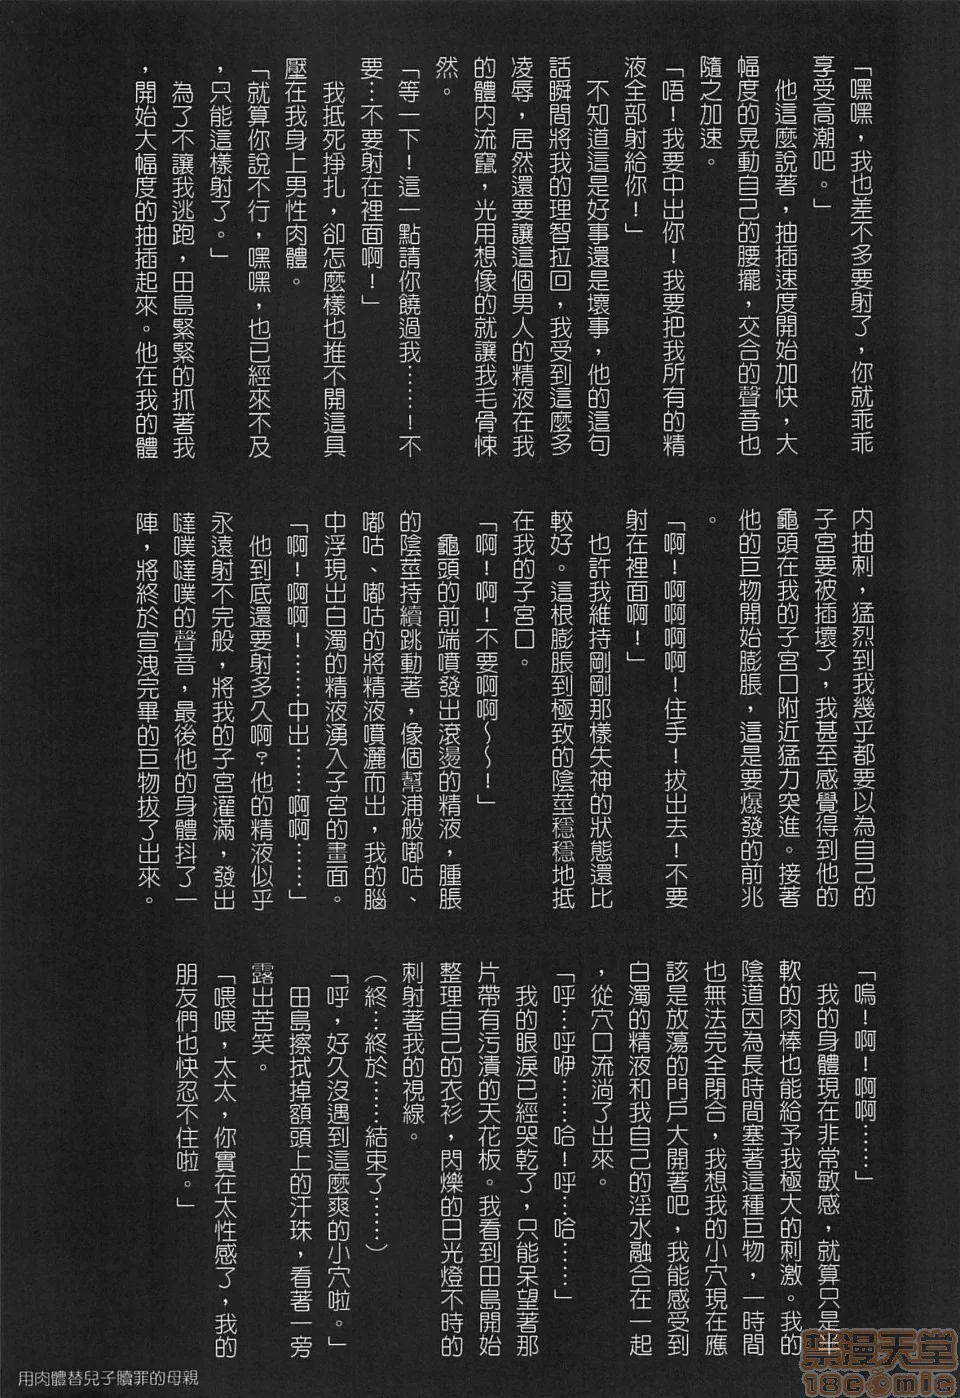 「嘿嘿，我也差不多要射了，你就乖乖
享受高潮吧。」
他這麼說著，抽插速度開始加快，大
幅度的晃動自己的腰擺，交合的聲音也
隨之加速。
「唔！我要中出你！我要把我所有的精
液全部射給你！」
不知道這是好事還是壞事，他的這句
話瞬間將我的理智拉回，我受到這麼多
凌辱，居然還要讓這個男人的精液在我
的體內流竄，光用想像的就讓我毛骨悚
然。
「等一下！這一點請你饒過我……！不
要…不要射在裡面啊！」
我抵死掙扎，卻怎麼樣也推不開這具
壓在我身上男性肉體。
「就算你說不行，嘿嘿，也已經來不及
，只能這樣射了。」
為了不讓我逃跑，田島緊緊的抓著我
，開始大幅度的抽插起來。他在我的體
內抽刺，猛烈到我幾乎都要以為自己的
子宮要被插壞了，我甚至感覺得到他的
龜頭在我的子宮口附近猛力突進。接著
他的巨物開始膨脹，這是要爆發的前兆
。
「啊！啊啊啊啊！住手！拔出去！不要
射在裡面啊！」
也許我維持剛剛那樣失神的狀態還比
較好。這根膨脹到極致的陰莖穩穩地抵
在我的子宮口。
「啊！啊！不要啊啊～～！」
龜頭的前端噴發出滾燙的精液，腫脹
的陰莖持續跳動著，像個幫浦般嘟咕、
嘟咕、嘟咕的將精液噴灑而出，我的腦
中浮現出白濁的精液湧入子宮的畫面。
「啊！啊啊！……中出……啊啊……」
他到底還要射多久啊？他的精液似乎
永遠射不完般，將我的子宮灌滿，發出
噠噗噠噗的聲音，最後他的身體抖了一
陣，將終於宣洩完畢的巨物拔了出來。
「嗚！啊！啊啊……」
我的身體現在非常敏感，就算只是半
軟的肉棒也能給予我極大的刺激。我的
陰道因為長時間塞著這種巨物，一時間
也無法完全閉合，我想我的小穴現在應
該是放蕩的門戶大開著吧，我能感受到
白濁的精液和我自己的淫水融合在一起
，從穴口流淌了出來。
「呼…呼咿……哈！呼…哈……」
我的眼淚已經哭乾了，只能呆望著那
片帶有污漬的天花板。我看到田島開始
整理自己的衣衫，閃爍的日光燈不時的
刺射著我的視線。
（終…終於……結束了……）
「呼，好久沒遇到這麼爽的小穴啦。」
田島擦拭掉額頭上的汗珠，看著一旁
露出苦笑。
「喂喂，太太，你實在太性感了，我的
朋友們也快忍不住啦。」
用肉體替兒子贖罪的母親
禁漫天堂
18comic.com